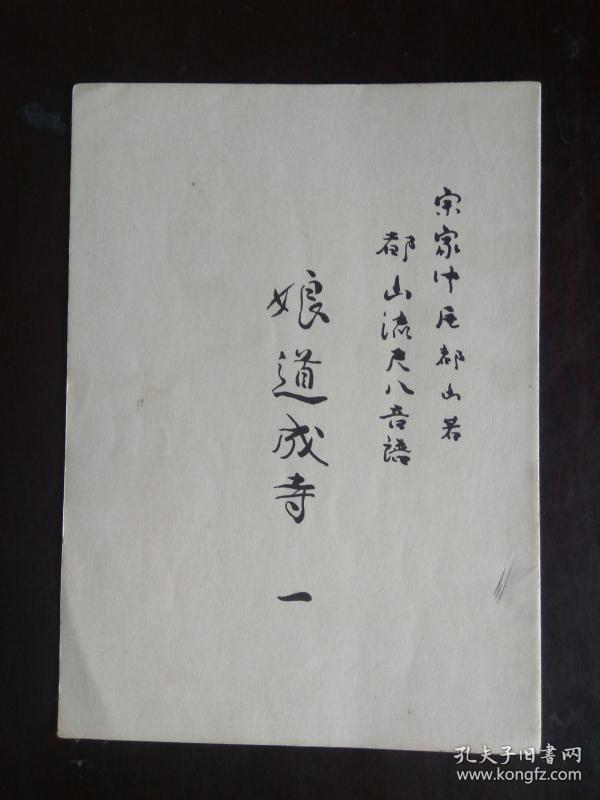 宗家中尾都山著
都山流尺八音譜
娘道成寺 一
孔夫子旧書网
www.kongfz.com